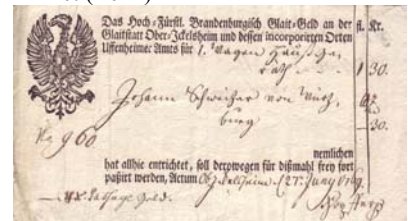 Das Hoch-Fürstl. Brandenburgisch Glait-Geld an der fl. Kr.
Glaitstatt Ober-Ickelsheim und dessen incorporirten Orten
Uffenheimer Amts für 1. Wagen
1 30.
Johann Schweitzer von
burg
30.
No 960
nemlichen
hat allhie entrichtet, soll derowegen für dißmahl frey fort
paßirt werden, Actum 27. Juny